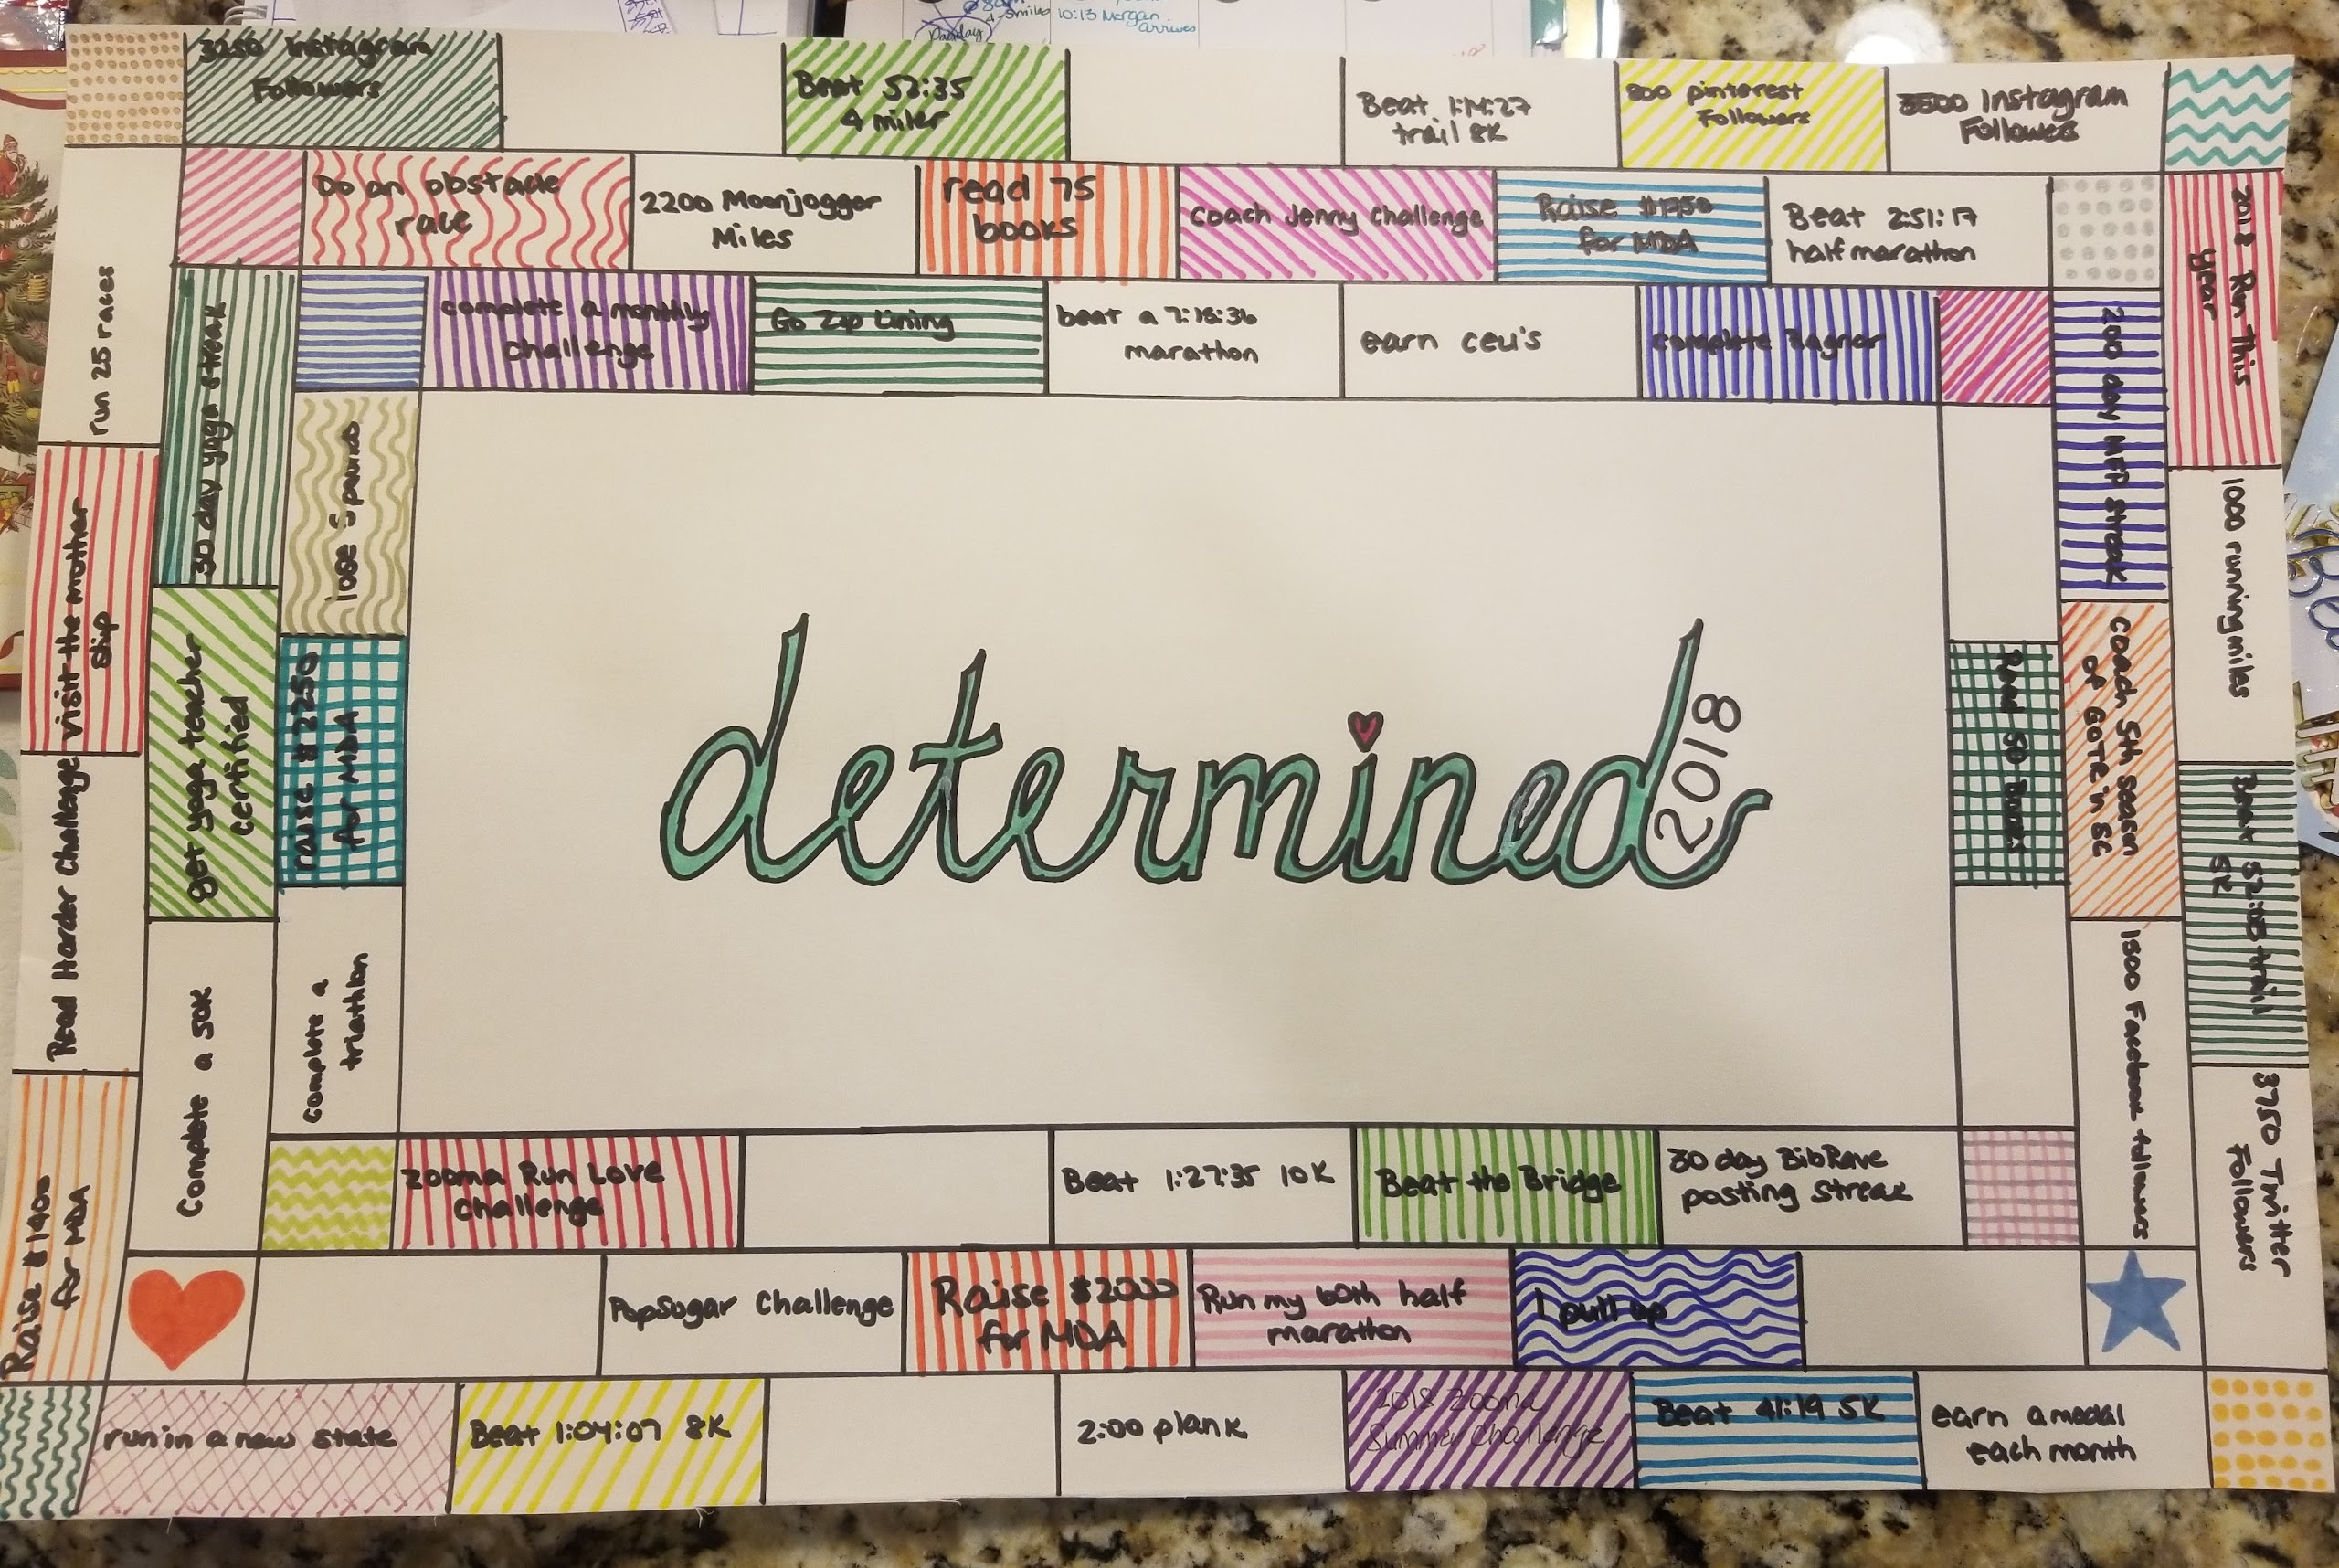 4-5miles
10:13 Morgan
arrives
3250 Instagram
Followers
Beat 52:35
4 miler
Beat 1:14:27
trail 8K
800 pinterest
Followers
3500 Instagram
Followers
Do an obstacle
race
2200 Moonjogger
Miles
read 75
books
Coach Jenny Challenge
Raise $1750
for MDA
Beat 2:51:17
half marathon
complete a monthly
challenge
Go Zip Lining
beat a 7:18:36
marathon
earn ceu's
complete Ragnar
run 25 races
visit the mother
ship
Read Harder Challenge
Raise $1400
for MDA
30 day yoga streak
get yoga teacher
certified
Complete a 50K
lose 5 pounds
raise $2250
for MDA
complete a
triathlon
determined
2018
Read 50 Books
200 day MFP Streak
Coach 5th season
of GOTR in SC
1500 Facebook followers
2018 Run This
Year
1000 running miles
Beat 52:05 trail
5K
3750 Twitter
Followers
Zooma Run Love
Challenge
Beat 1:27:35 10K
Beat the Bridge
30 day BibRave
posting streak
PopSugar Challenge
Raise $2000
for MDA
Run my 60th half
marathon
1 pull up
run in a new state
Beat 1:04:07 8K
2:00 plank
2018 Zooma
Summer Challenge
Beat 41:19 5K
earn a medal
each month